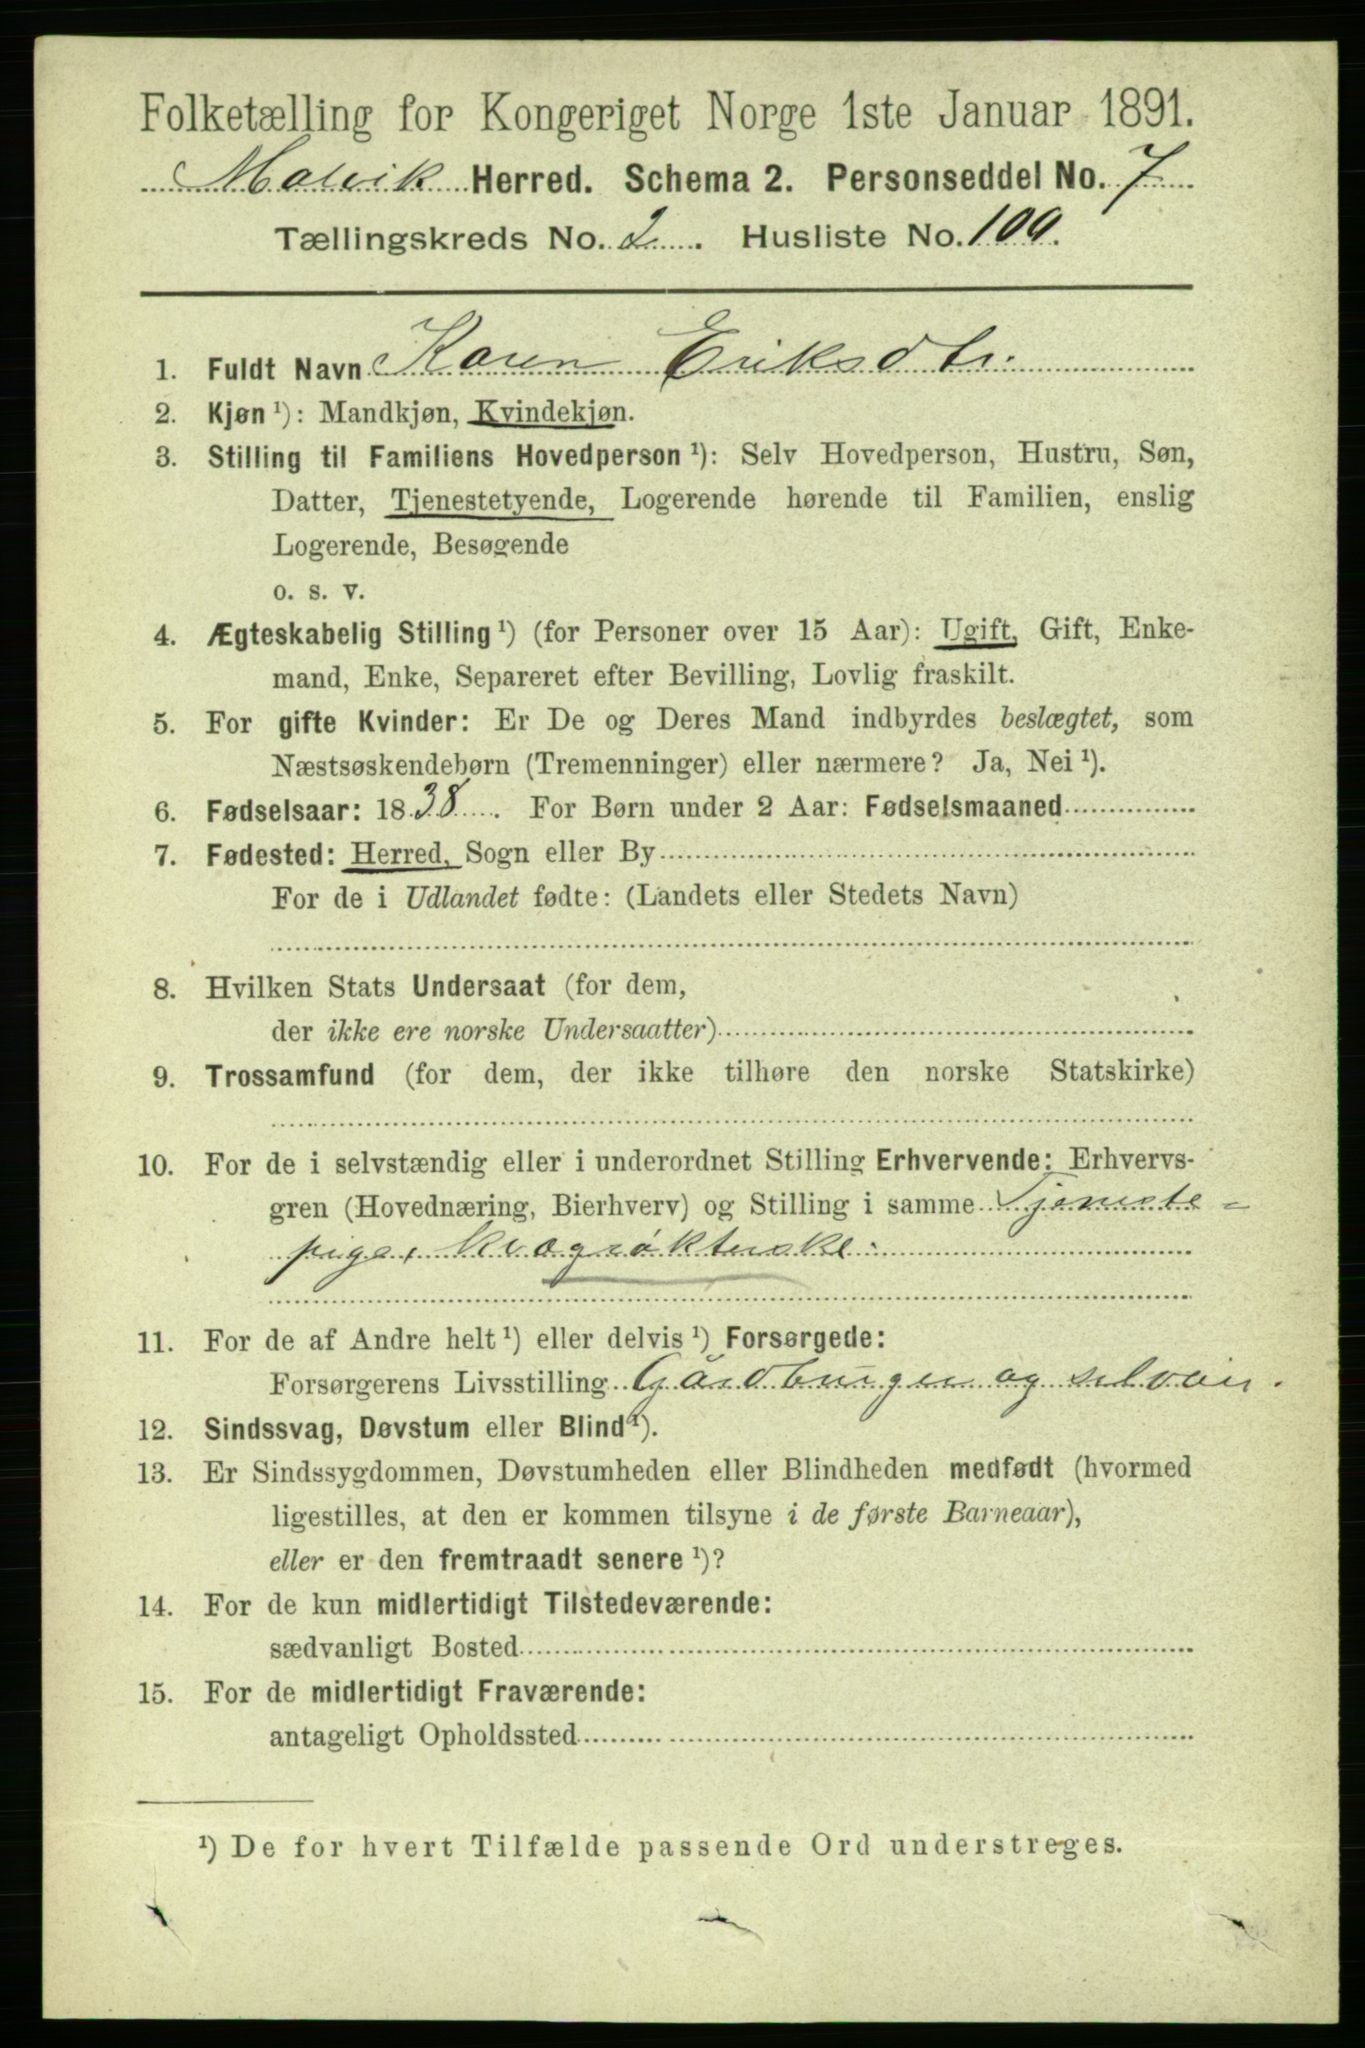 Folketælling for Kongeriget Norge 1ste Januar 1891.
Malvik Herred. Schema 2. Personseddel No. 7
Tællingskreds No. 2. Husliste No. 109.
1. Fuldt Navn Karen Eriksdtr.
2. Kjøn ¹): Mandkjøn, Kvindekjøn.
3. Stilling til Familiens Hovedperson ¹): Selv Hovedperson, Hustru, Søn,
Datter, Tjenestetyende, Logerende hørende til Familien, enslig
Logerende, Besøgende
o. s. v.
4. Ægteskabelig Stilling ¹) (for Personer over 15 Aar): Ugift, Gift, Enke-
mand, Enke, Separeret efter Bevilling, Lovlig fraskilt.
5. For gifte Kvinder: Er De og Deres Mand indbyrdes beslægtet, som
Næstsøskendebørn (Tremenninger) eller nærmere? Ja, Nei ¹).
6. Fødselsaar: 1838. For Børn under 2 Aar: Fødselsmaaned
7. Fødested: Herred, Sogn eller By
For de i Udlandet fødte: (Landets eller Stedets Navn)
8. Hvilken Stats Undersaat (for dem,
der ikke ere norske Undersaatter)
9. Trossamfund (for dem, der ikke tilhøre den norske Statskirke)
10. For de i selvstændig eller i underordnet Stilling Erhvervende: Erhvervs-
gren (Hovednæring, Bierhverv) og Stilling i samme Tjeneste=
pige, kvægrøkterske.
11. For de af Andre helt ¹) eller delvis ¹) Forsørgede:
Forsørgerens Livsstilling Gårdbruger og selveier.
12. Sindssvag, Døvstum eller Blind ¹).
13. Er Sindssygdommen, Døvstumheden eller Blindheden medfødt (hvormed
ligestilles, at den er kommen tilsyne i de første Barneaar),
eller er den fremtraadt senere ¹)?
14. For de kun midlertidigt Tilstedeværende:
sædvanligt Bosted
15. For de midlertidigt Fraværende:
antageligt Opholdssted
¹) De for hvert Tilfælde passende Ord understreges.